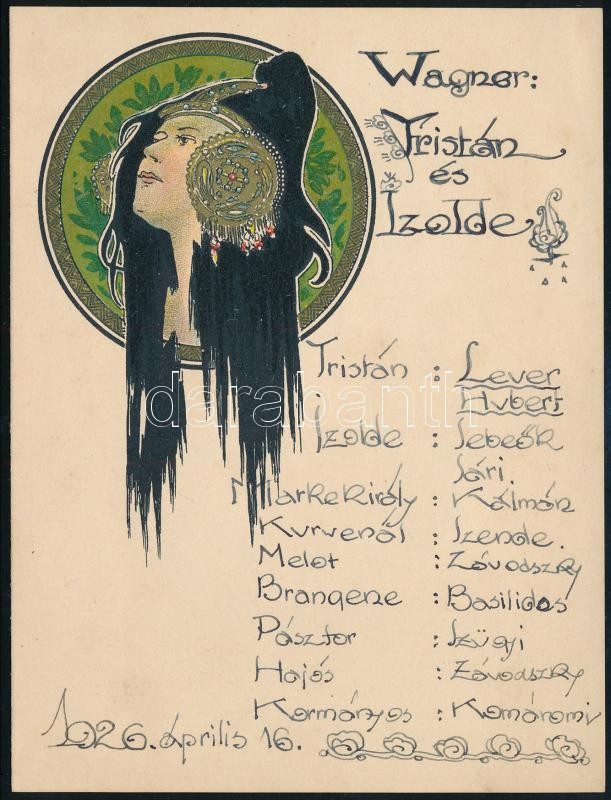 Wagner:
Tristán
és
Izolde
Tristán : Lever
Hubert
Izolde : Sebeők
Sári.
Marke király : Kálmán
Kurvenál : Szende.
Melot : Závodszky
Brangene : Basilides
Pásztor : Szügyi
Hajós : Závodszky
Kormányos : Komáromi
1926. április 16.
darabanth